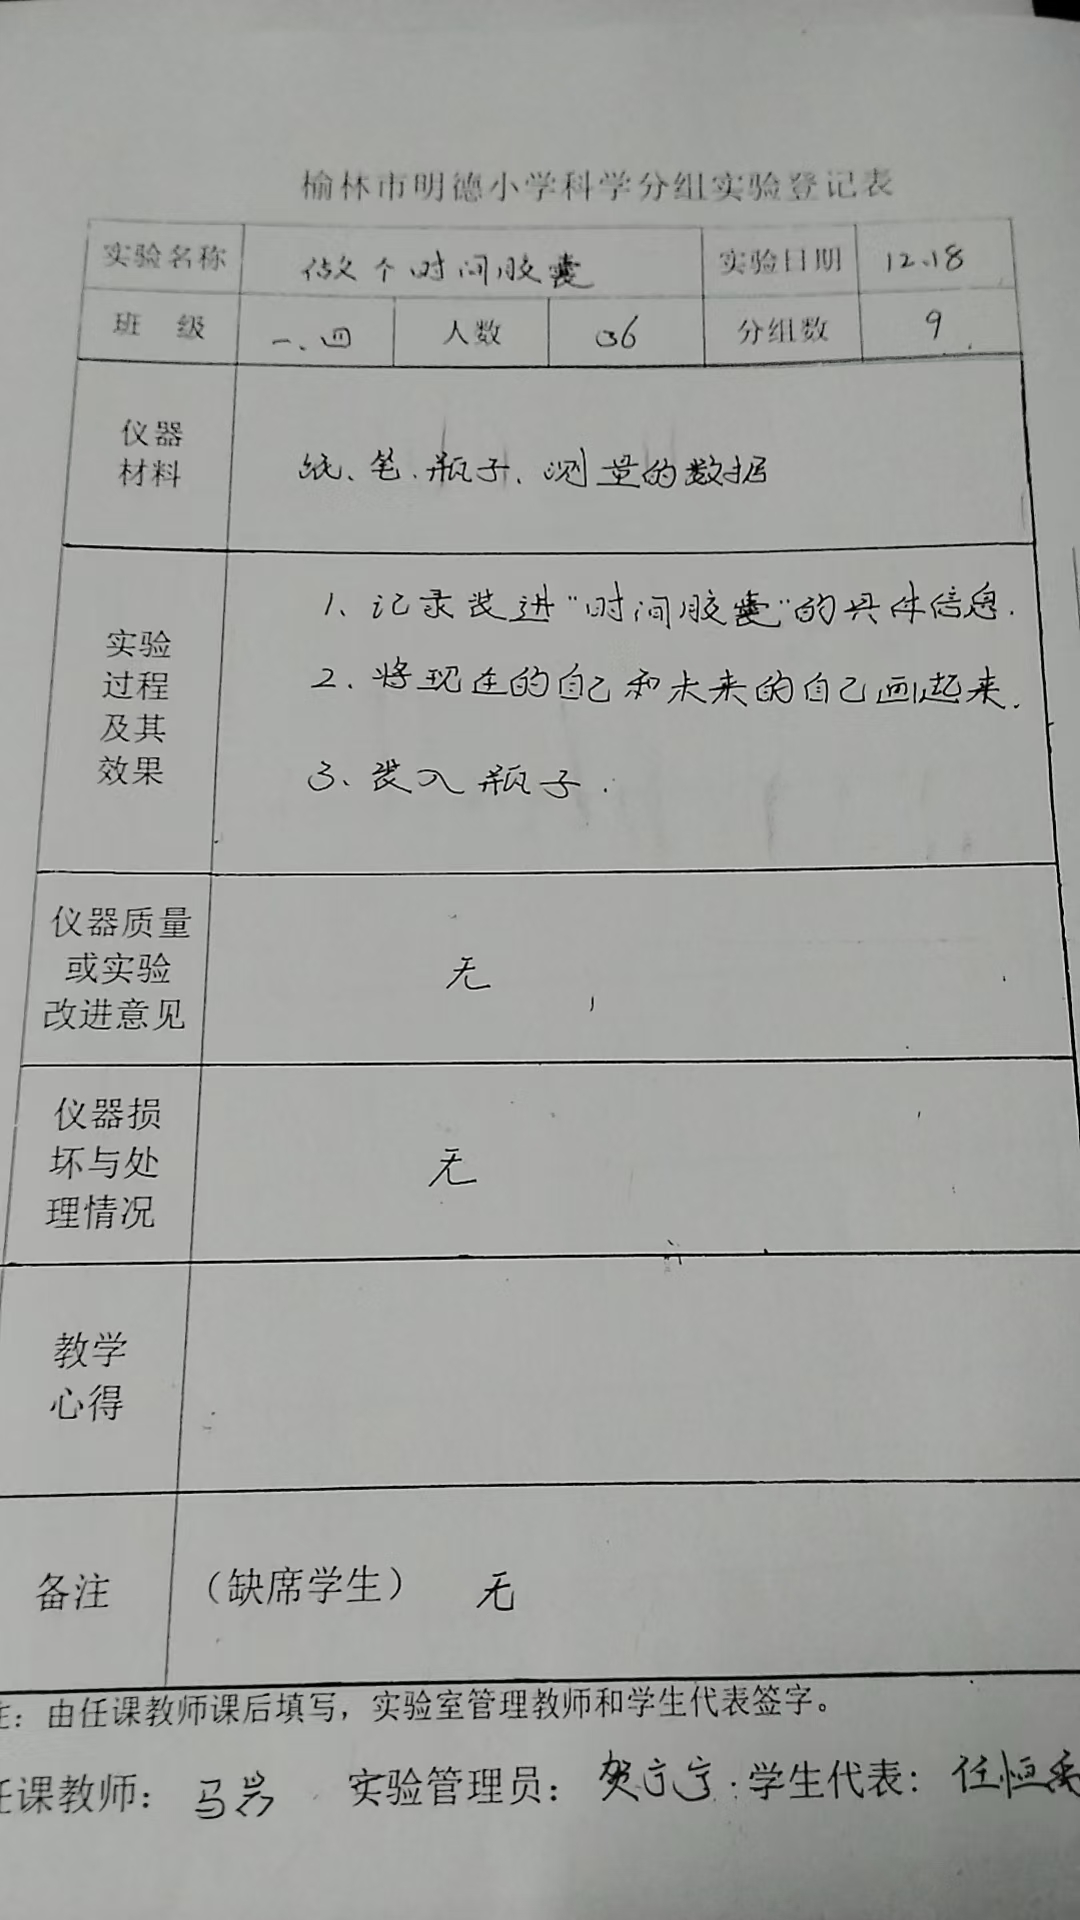 榆林市明德小学科学分组实验登记表
实验名称 做个时间胶囊 实验日期 12.18
班 级 一、四 人数 36 分组数 9
仪器
材料
纸、笔、瓶子、测量的数据
实验
过程
及其
效果
1、记录装进"时间胶囊"的具体信息.
2、将现在的自己和未来的自己画起来.
3、装入瓶子.
仪器质量
或实验
改进意见
无
仪器损
坏与处
理情况
无
教学
心得
备注 （缺席学生） 无
注：由任课教师课后填写，实验室管理教师和学生代表签字。
任课教师：马 实验管理员：贺宁宁 学生代表：任恒